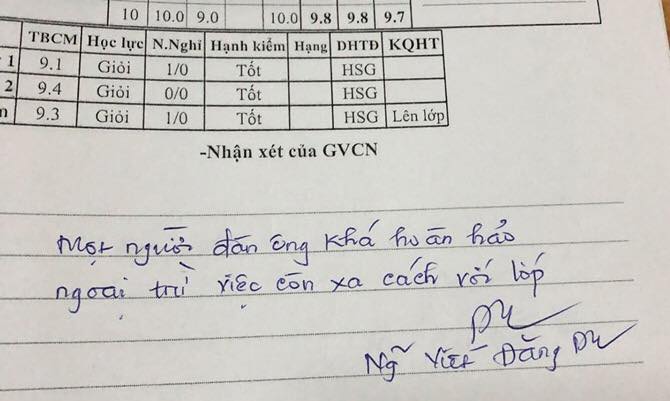 10 10.0 9.0 10.0 9.8 9.8 9.7
TBCM Học lực N.Nghỉ Hạnh kiểm Hạng DHTĐ KQHT
1 9.1 Giỏi 1/0 Tốt HSG
2 9.4 Giỏi 0/0 Tốt HSG
n 9.3 Giỏi 1/0 Tốt HSG Lên lớp
-Nhận xét của GVCN
Một người đàn ông khá hoàn hảo
ngoại trừ việc còn xa cách với lớp
Ng Viết Đăng Du